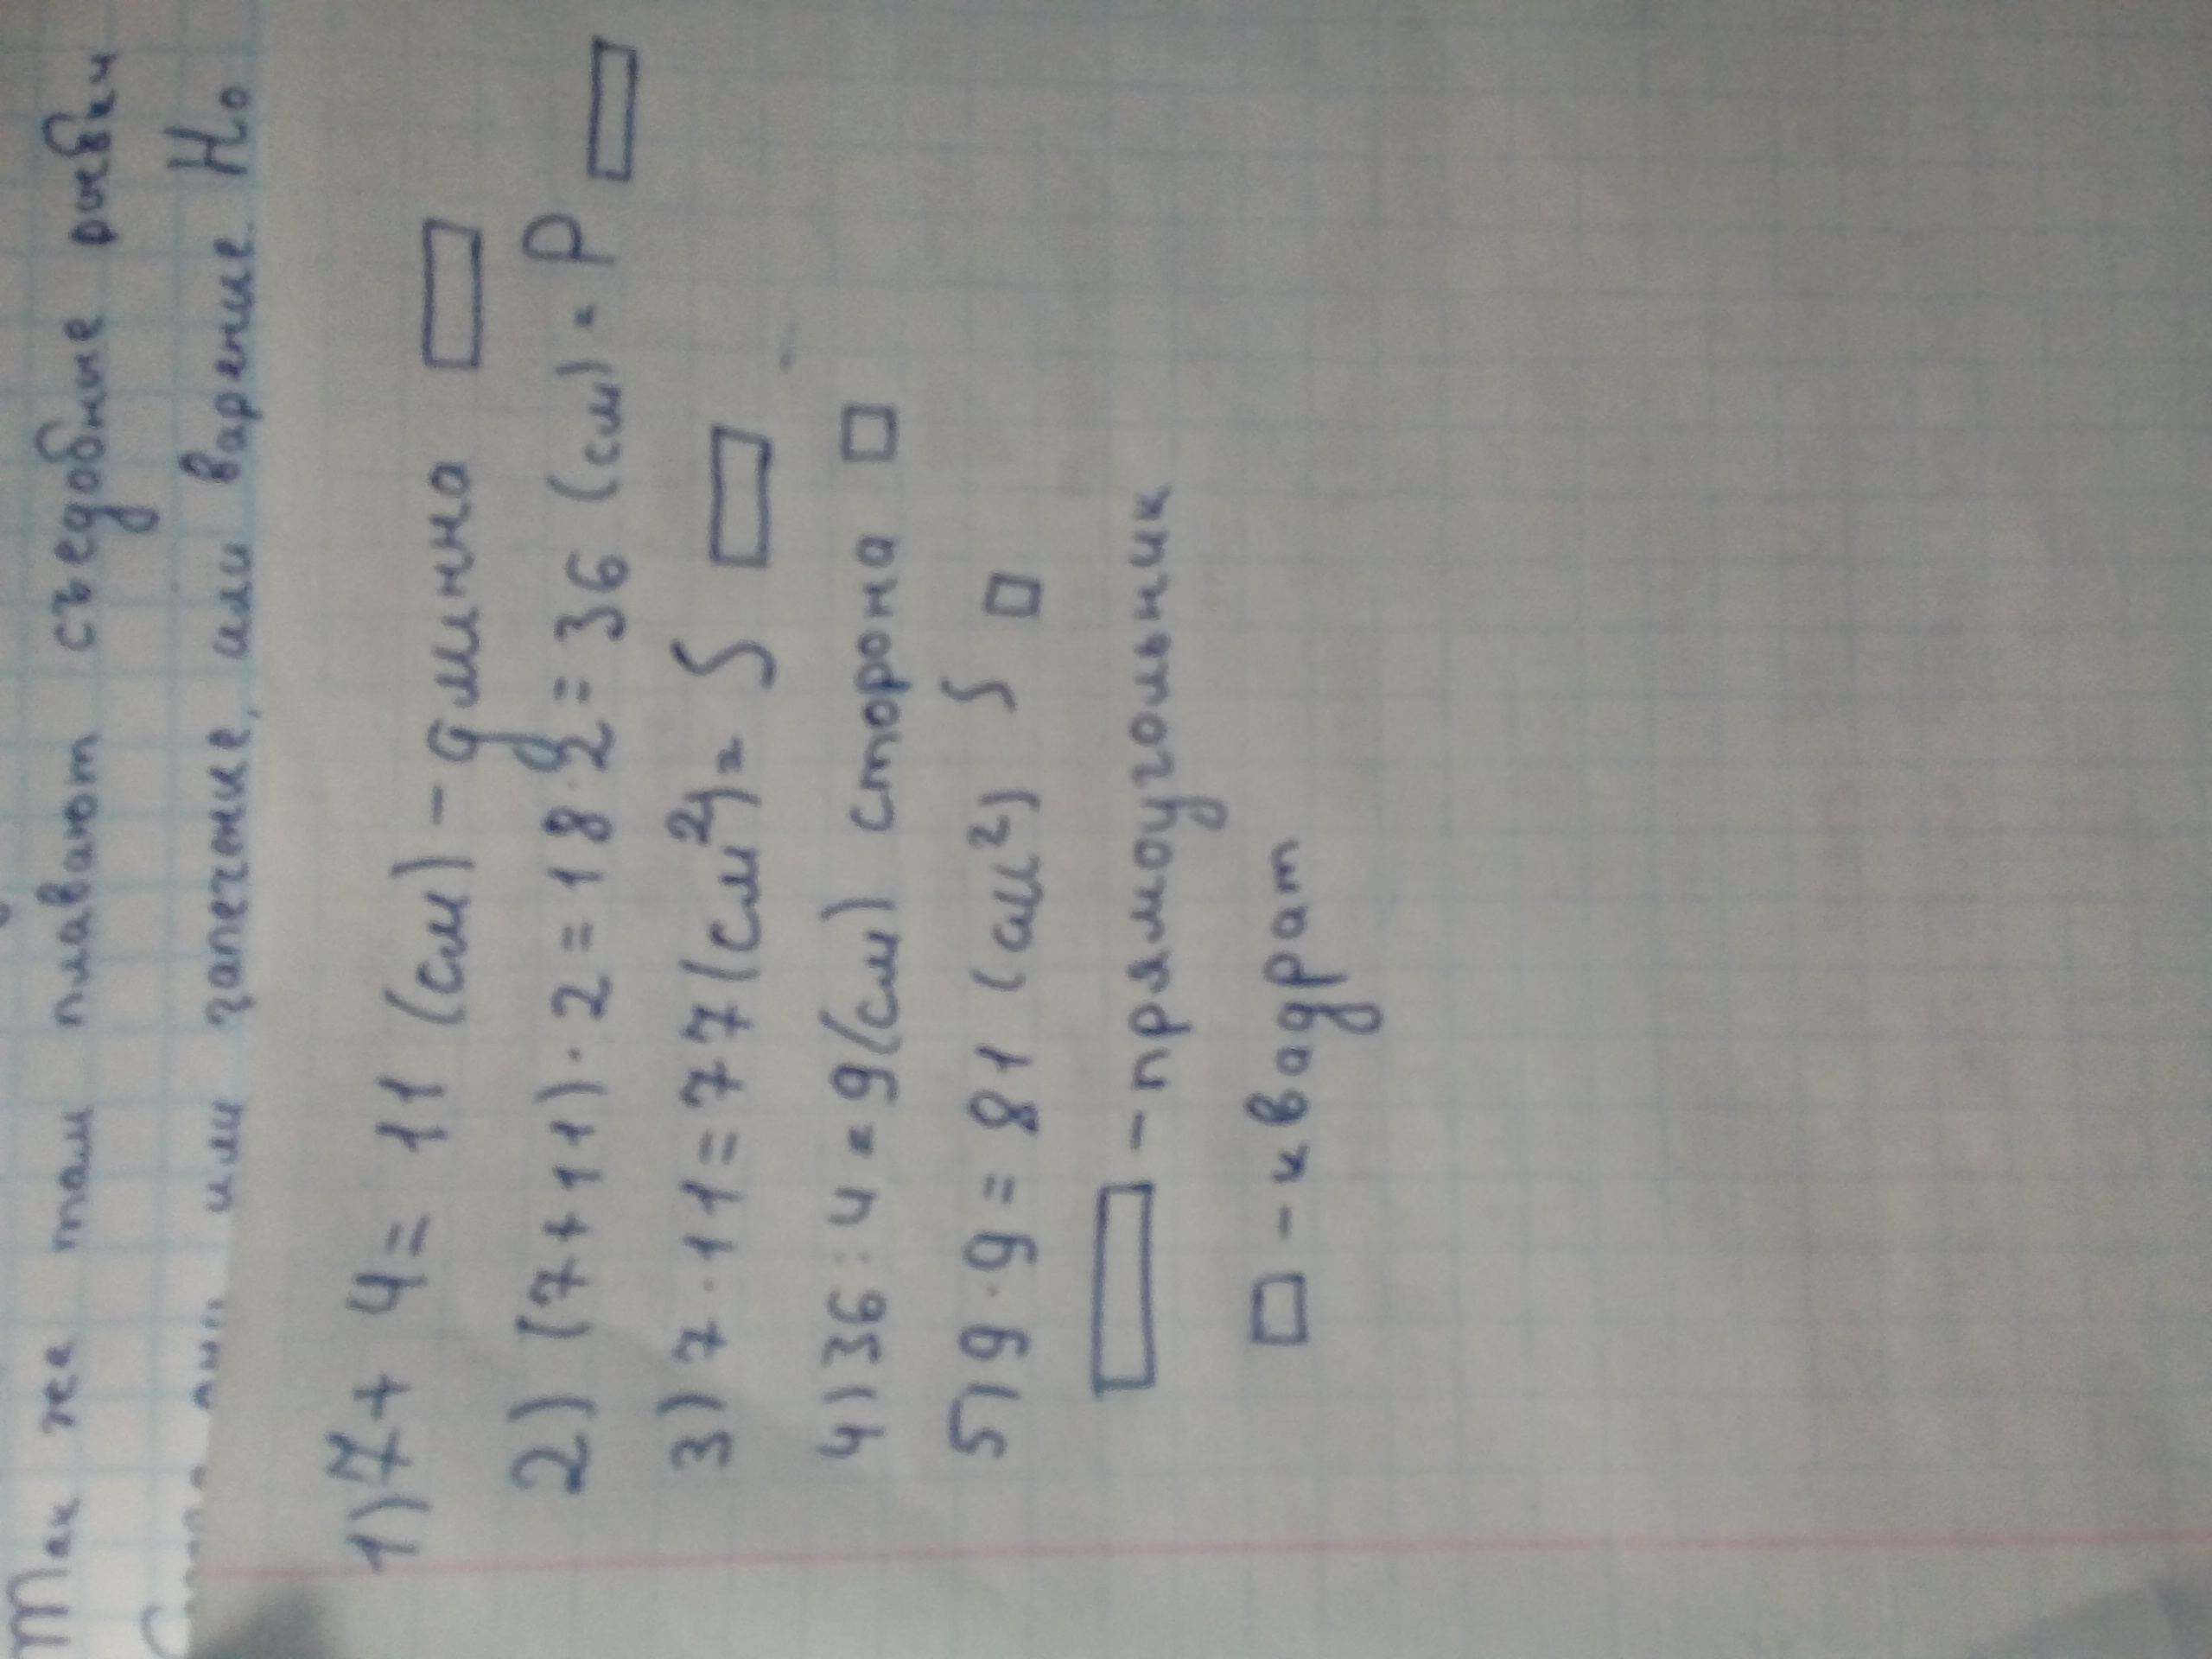 Так же там плавают съедобные рыбки
или запечные, или варение. Но
1) 7 + 4 = 11 (см) - длинна ▭
2) (7 + 11) · 2 = 18 · 2 = 36 (см) = P ▭
3) 7 · 11 = 77 (см²) = S ▭
4) 36 : 4 = 9 (см) сторона □
5) 9 · 9 = 81 (см²) S □
▭ - прямоугольник
□ - квадрат